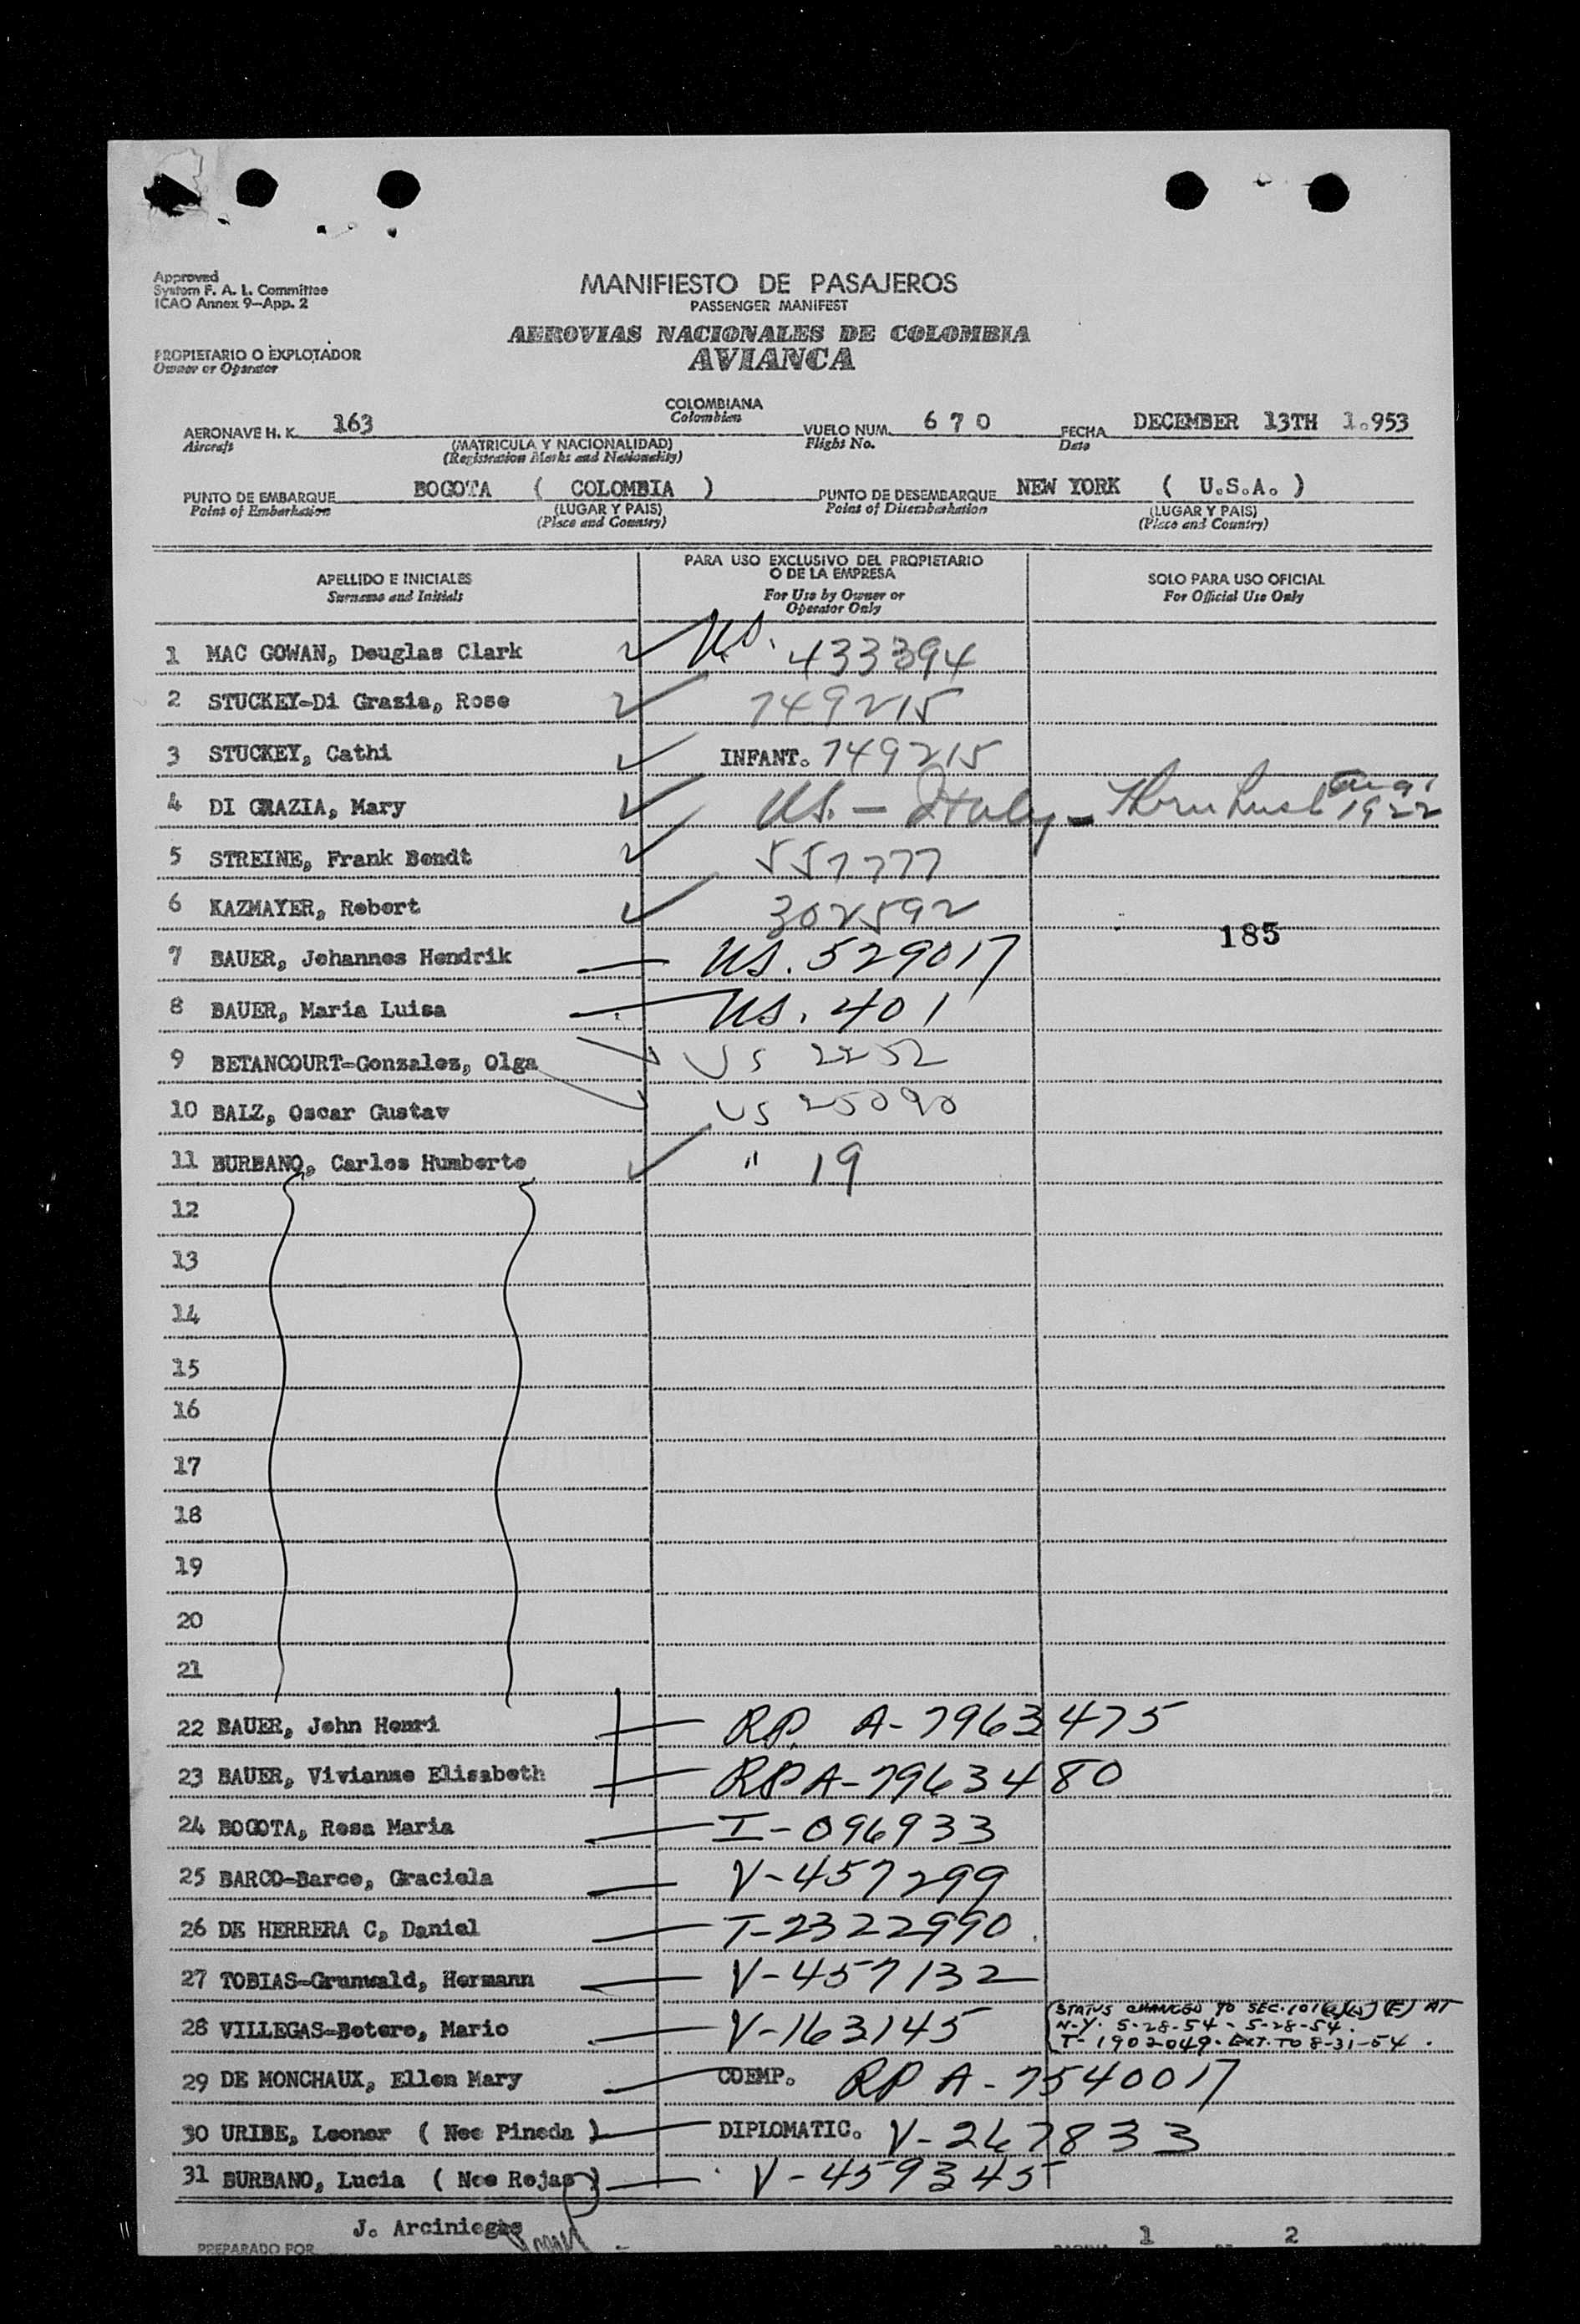 Approved
System F. A. L. Committee
ICAO Annex 9-App. 2
MANIFIESTO DE PASAJEROS
PASSENGER MANIFEST
AEROVIAS NACIONALES DE COLOMBIA
AVIANCA
PROPIETARIO O EXPLOTADOR
Owner or Operator
COLOMBIANA
Colombian
AERONAVE H. K. 163
Aircraft
(MATRICULA Y NACIONALIDAD)
(Registration Marks and Nationality)
VUELO NUM. 6 7 0
Flight No.
FECHA DECEMBER 13TH 1.953
Date
PUNTO DE EMBARQUE BOGOTA ( COLOMBIA )
Point of Embarkation
(LUGAR Y PAIS)
(Place and Country)
PUNTO DE DESEMBARQUE NEW YORK ( U.S.A. )
Point of Disembarkation
(LUGAR Y PAIS)
(Place and Country)
APELLIDO E INICIALES
Surname and Initials
PARA USO EXCLUSIVO DEL PROPIETARIO
O DE LA EMPRESA
For Use by Owner or
Operator Only
SOLO PARA USO OFICIAL
For Official Use Only
1 MAC GOWAN, Douglas Clark US. 433394
2 STUCKEY-Di Grazia, Rose 749215
3 STUCKEY, Cathi INFANT. 749215
4 DI GRAZIA, Mary US. - Italy - 1922
5 STREINE, Frank Bendt 557777
6 KAZMAYER, Robert 302592
185
7 BAUER, Johannes Hendrik US. 529017
8 BAUER, Maria Luisa US. 401
9 BETANCOURT-Gonzalez, Olga US 2252
10 BALZ, Oscar Gustav US 25090
11 BURBANO, Carlos Humberto " 19
12
13
14
15
16
17
18
19
20
21
22 BAUER, John Henri RP. A-7963475
23 BAUER, Vivianne Elisabeth RP A-7963480
24 BOGOTA, Rosa Maria I-096933
25 BARCO-Barco, Graciela V-457299
26 DE HERRERA C, Daniel T-2322990
27 TOBIAS-Grunwald, Hermann V-457132
28 VILLEGAS-Botero, Mario V-163145
STATUS CHANGED TO SEC. 101(a)(15)(F) AT
N.Y. 5-28-54 - 5-28-54.
T-1902049. EXT. TO 8-31-54.
29 DE MONCHAUX, Ellen Mary COEMP. RP A-7540017
30 URIBE, Leonor ( Nee Pineda ) DIPLOMATIC. V-267833
31 BURBANO, Lucia ( Nee Rojas ) V-459345
J. Arciniegas
PREPARADO POR
1 2